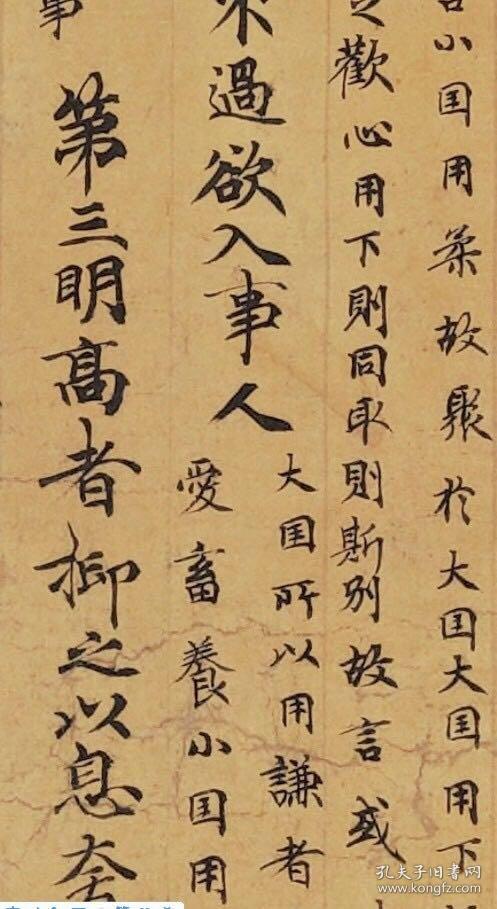 小国用柔故聚於大国大国用下
之歡心用下則同取則斯別故言或
不過欲入事人
大国所以用謙者
愛畜養小国用
事
第三明高者抑之以息奢
孔夫子旧书网
www.kongfz.com